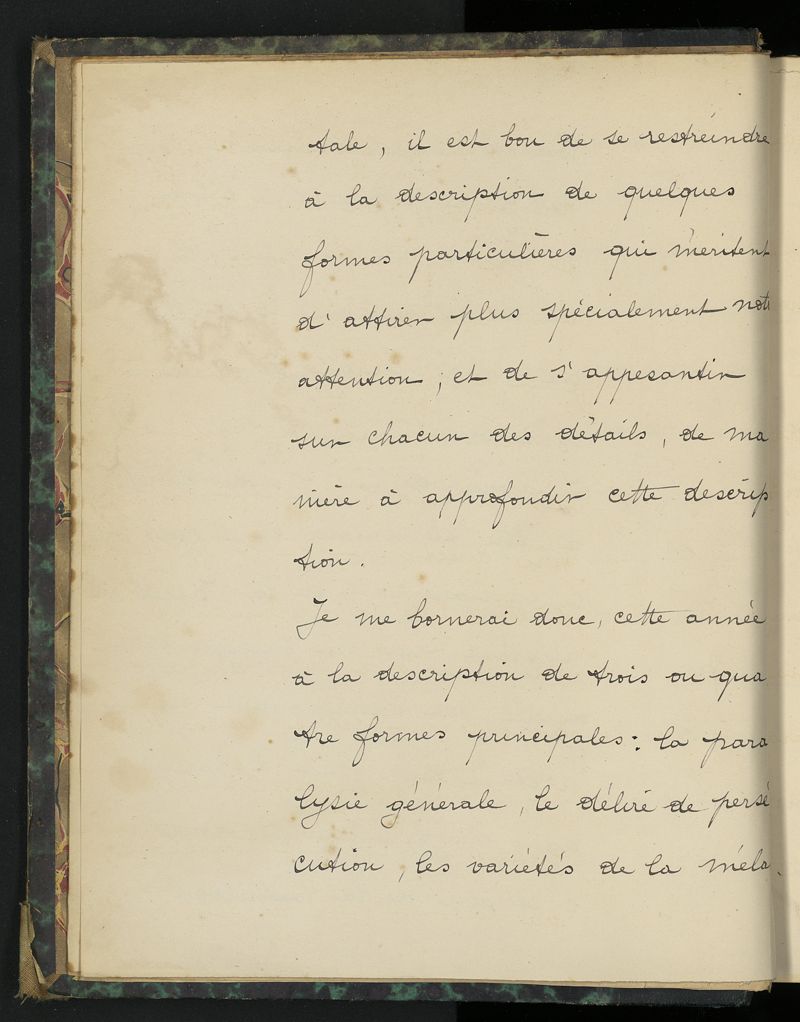 tale, il est bon de se restreindre
à la description de quelques
formes particulières qui méritent
d'attirer plus spécialement notre
attention ; et de s'appesantir
sur chacun des détails, de ma
nière à approfondir cette descrip
tion.
Je me bornerai donc, cette année
à la description de trois ou qua
tre formes principales : la para
lysie générale, le délire de persé
cution, les variétés de la méla